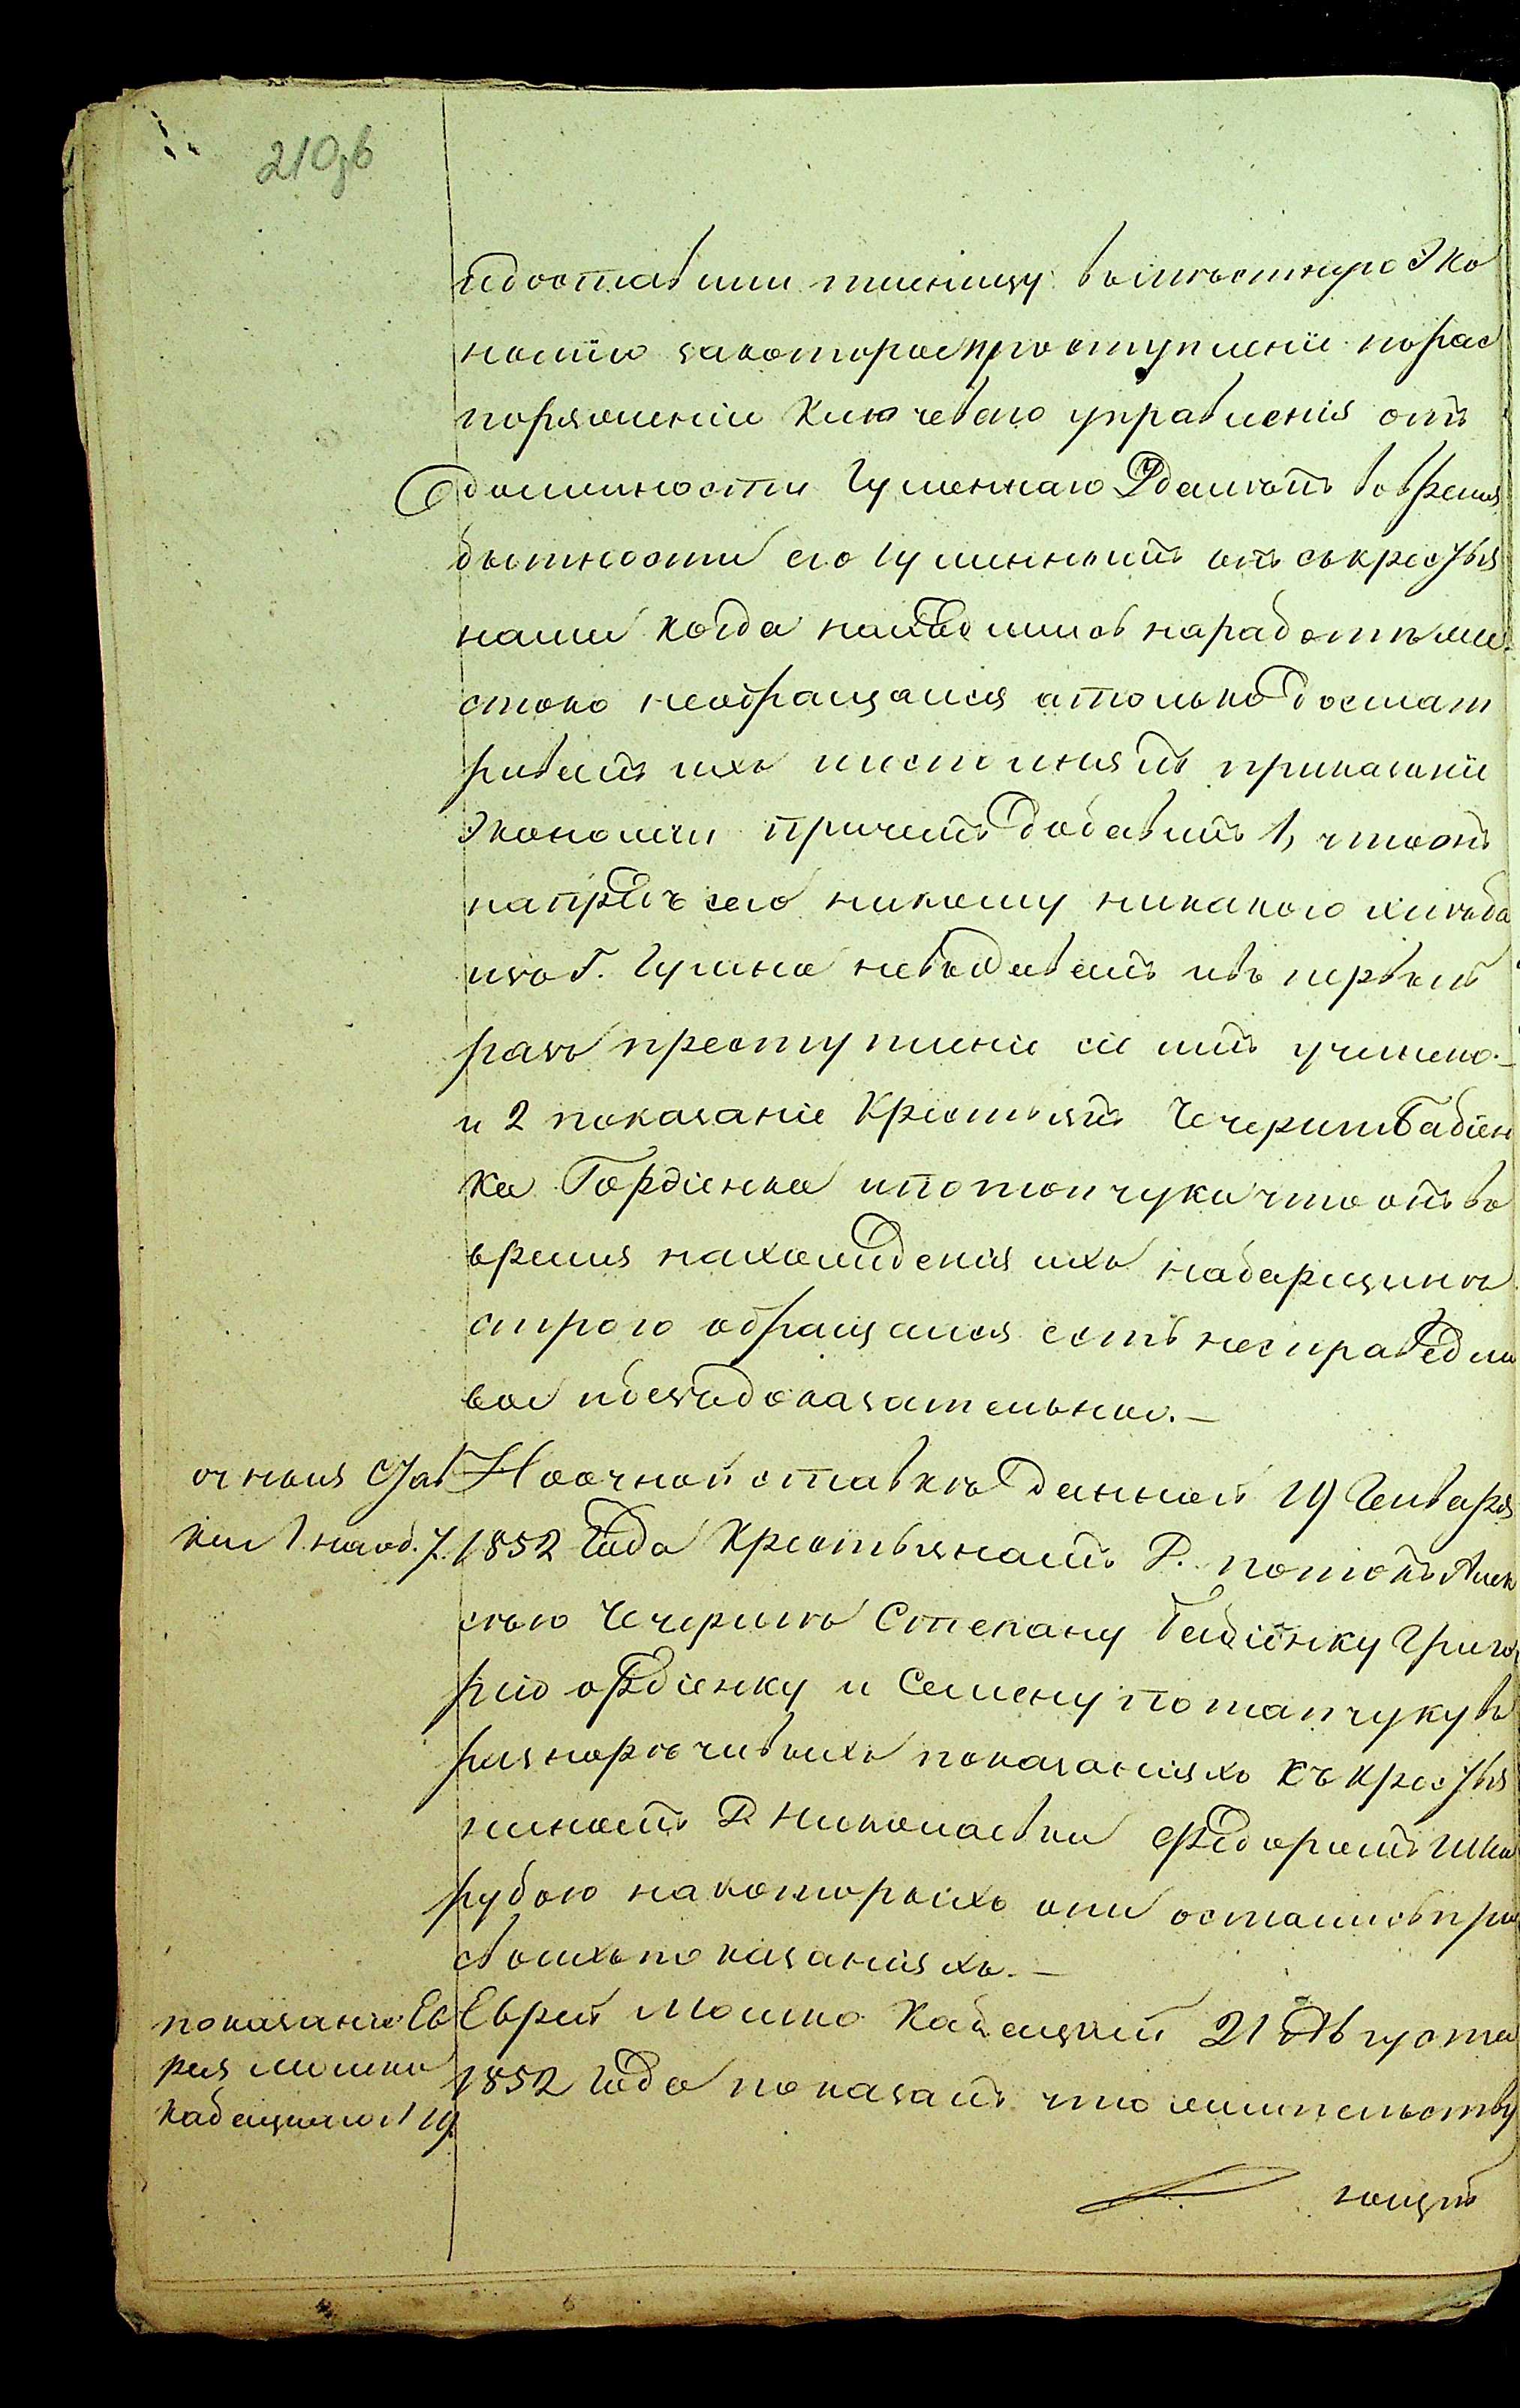 210зв
идоставили пшеницу въ мѣстную Эко
номію закоторое преступленіе порас
поряженію Ключеваго управленія отъ
должности Гуменнаго Удаленъ вовремя
бытности его гуменнымъ онъ съ крестья
нами когда находились наработѣ же
стоко необращался атолько досмат
ривалъ ихъ иисполнялъ приказаніе
Экономіи причемъ добавилъ 1, что онъ
напредь сего никому никакого хлѣба
изъ Г. Гумна невыдавалъ ивъ первый
разъ преступленіе сіе имъ учинено. –
и 2 показаніе Крестьянъ Чечерина Бабіен
ка Гордіенка ипотапчука что онъ во
время нахожденія ихъ набарщинѣ
строго обращался есть несправедли
вое ибездоказательное. –
очныя Став
ки 1 на об. 7.
На очной ставкѣ данной 19 Генваря
1852 Года Крестьянамъ Р. потокъ Алек
сѣю Чечерину Степану Бабіенку Григо
рію ордіенку и Семену потапчуку въ
разнорѣчивыхъ показаніяхъ съ крестья
ниномъ Д. Николаевки Федоромъ Шка
рубою накоторыхъ они остались при
своихъ показаніяхъ. –
показаніе Ев
рея мошка
Кабецкаго 1 19
Еврей Мошко Кабецкій 21 Августа
1852 Года показалъ что жительству
ющій